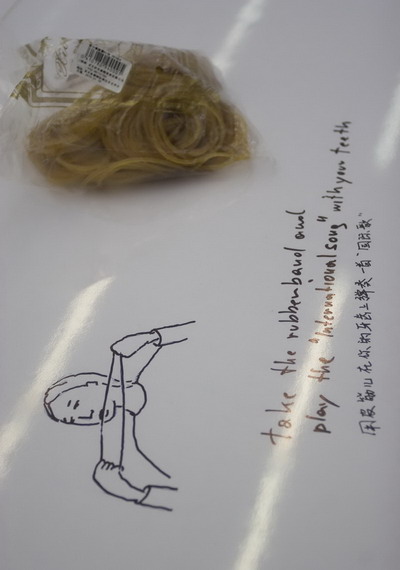 take the rubberband and
play the "International song" with your teeth
用皮筋儿在你的牙齿上弹奏一首"国际歌"